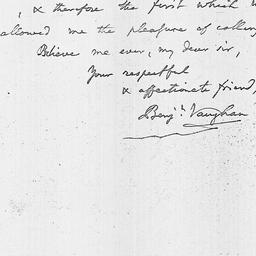 , & therefore the first which
allowed me the pleasure of calling
Believe me ever, my dear sir,
Your respectful
& affectionate friend,
Benj.n Vaughan